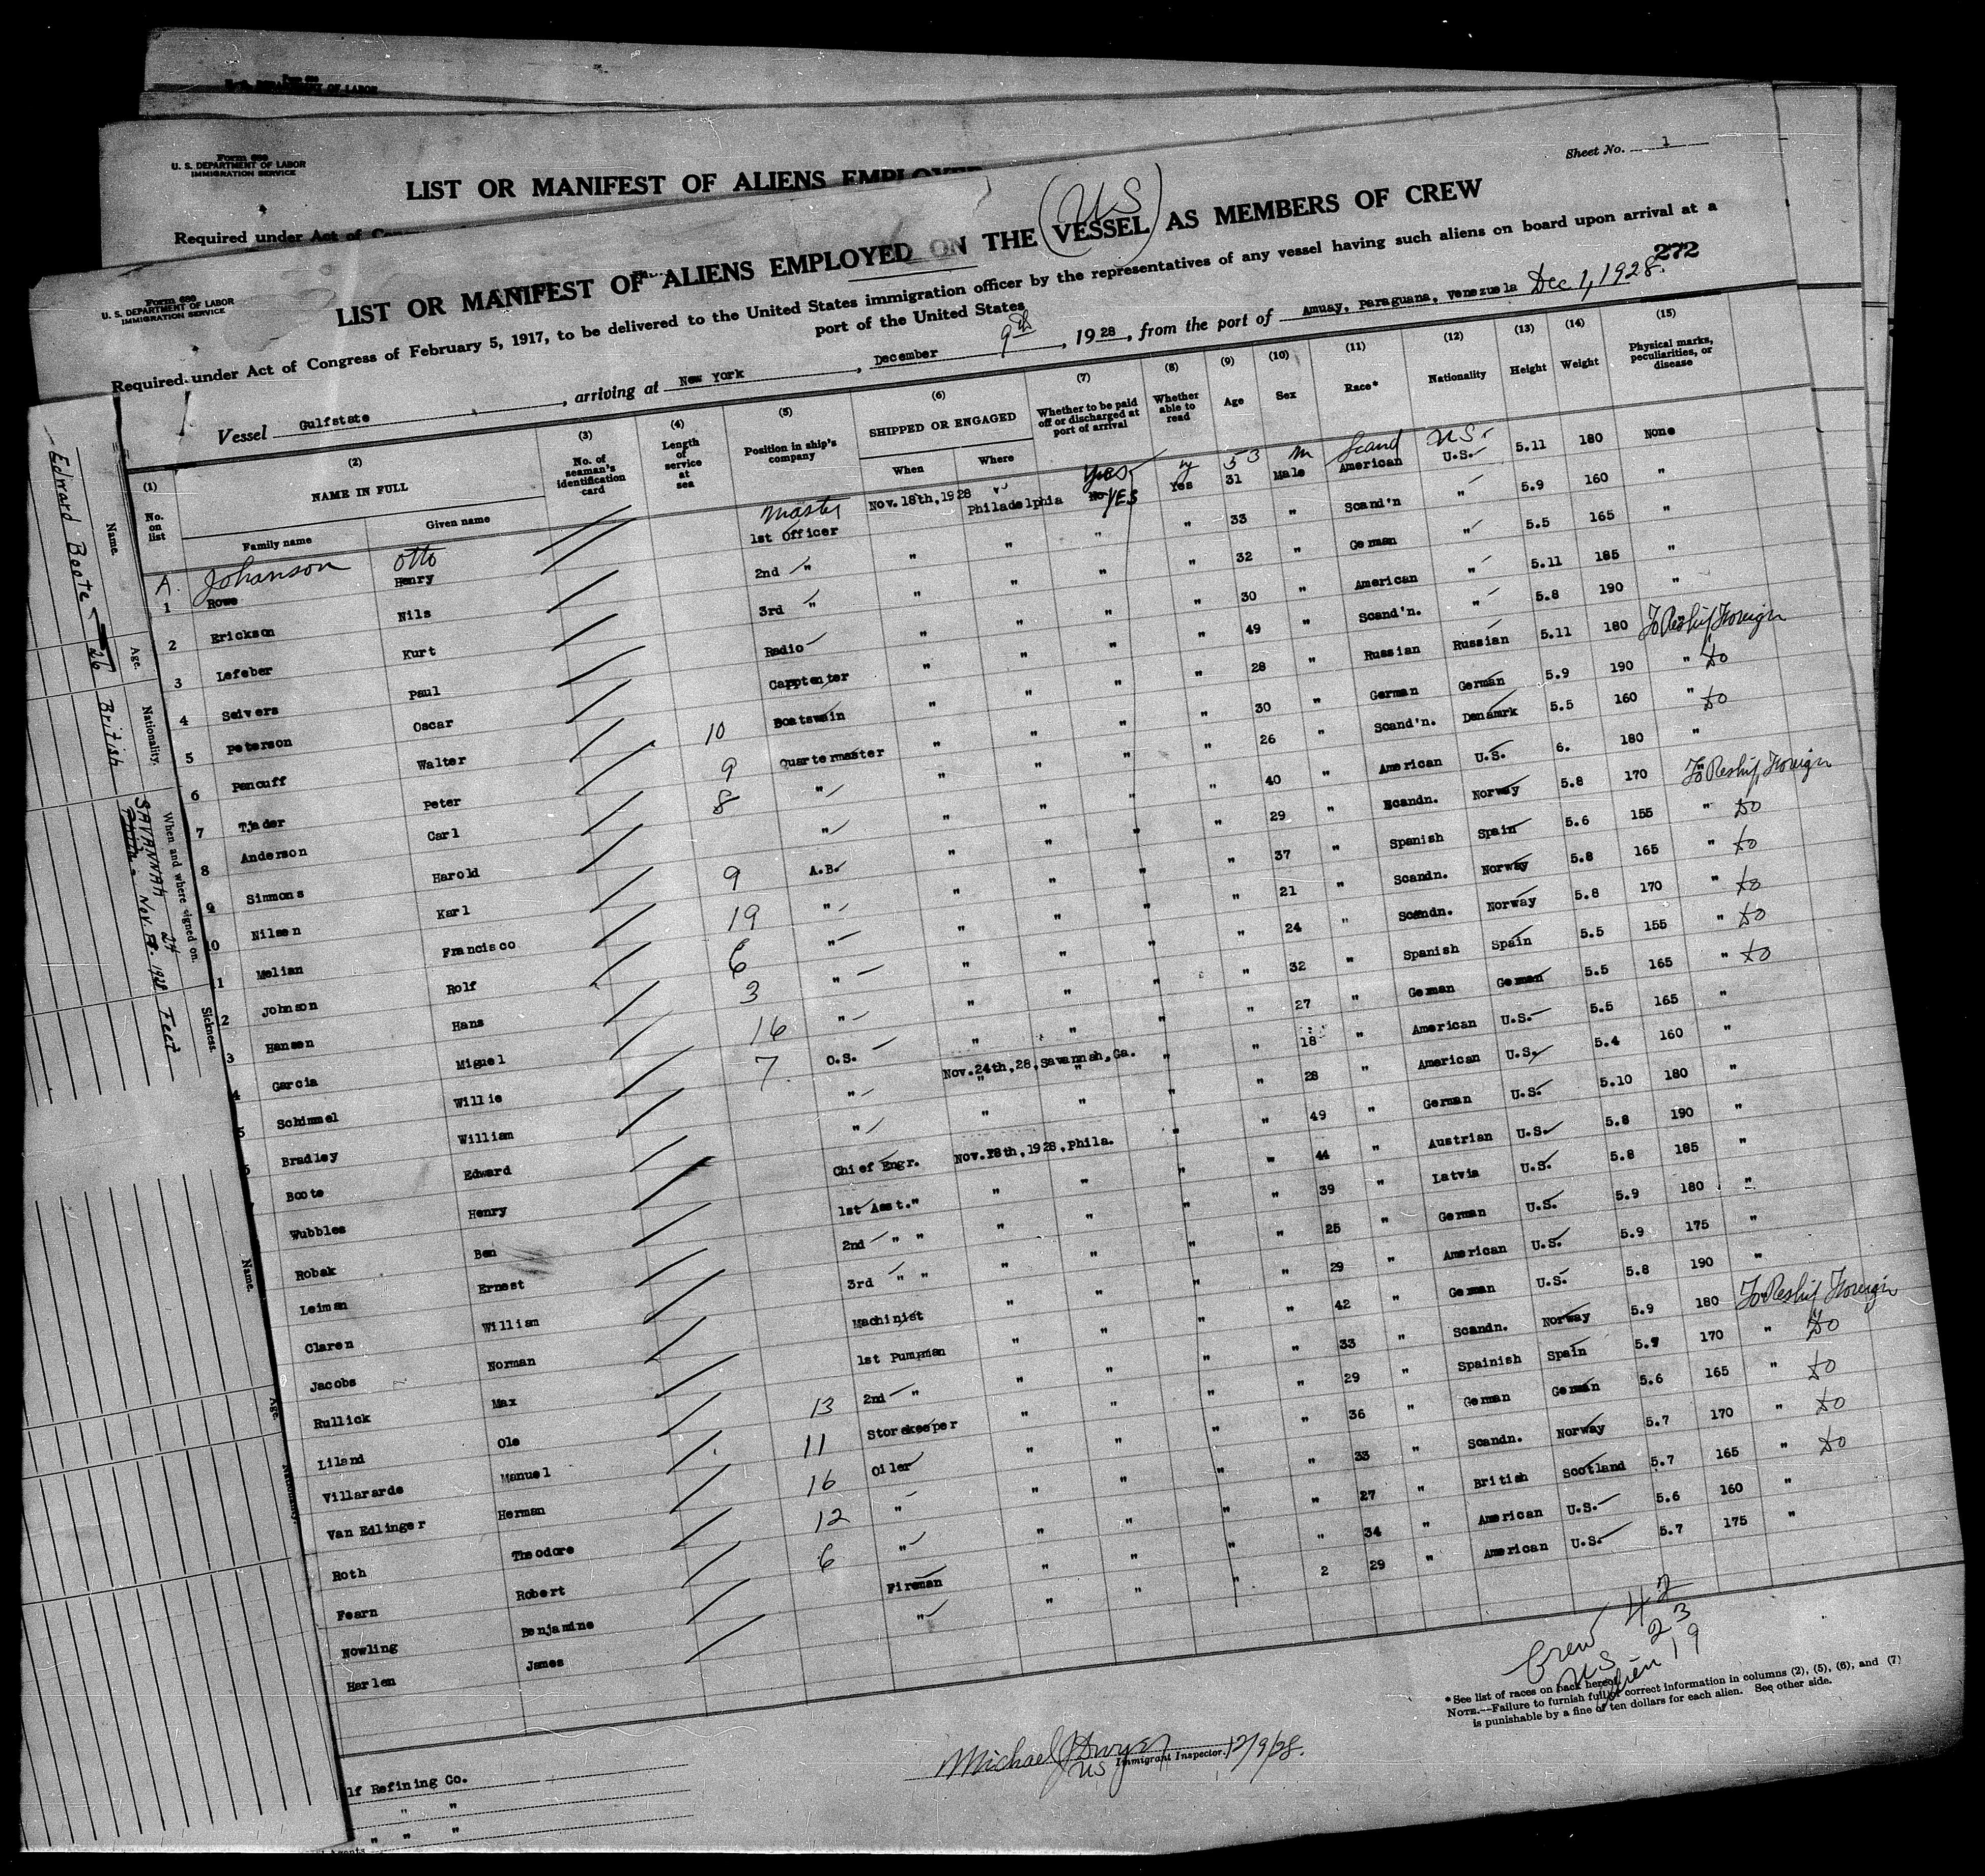 Form 689
U. S. DEPARTMENT OF LABOR
Form 689
U. S. DEPARTMENT OF LABOR
IMMIGRATION SERVICE
LIST OR MANIFEST OF ALIENS EMPLOYED
Required under Act of
Sheet No. 1
Form 689
U. S. DEPARTMENT OF LABOR
IMMIGRATION SERVICE
(US)
LIST OR MANIFEST OF ALIENS EMPLOYED ON THE VESSEL AS MEMBERS OF CREW
Required under Act of Congress of February 5, 1917, to be delivered to the United States immigration officer by the representatives of any vessel having such aliens on board upon arrival at a
port of the United States
272
Vessel Gulfstate, arriving at New York, December 9th, 1928, from the port of Amuay, Paraguana, Venezuela Dec 1, 1928.
(1) No. on list (2) NAME IN FULL Family name Given name (3) No. of seaman's identification card (4) Length of service at sea (5) Position in ship's company (6) SHIPPED OR ENGAGED When Where (7) Whether to be paid off or discharged at port of arrival (8) Whether able to read (9) Age (10) Sex (11) Race* (12) Nationality (13) Height (14) Weight (15) Physical marks, peculiarities, or disease
A. Johanson Otto Master Yes y 53 m Scand U.S.
1 Rowe Henry 1st Officer Nov. 18th, 1928 Philadelphia No YES Yes 31 Male American U.S. 5.11 180 None
2 Erickson Nils 2nd " " " " " 33 " Scand'n " 5.9 160 "
3 Lefeber Kurt 3rd " " " " " 32 " German " 5.5 165 "
4 Seivers Paul Radio " " " " 30 " American " 5.11 185 "
5 Peterson Oscar Carptenter " " " " 49 " Scand'n. " 5.8 190 "
6 Pencuff Walter 10 Boatswain " " " " 28 " Russian Russian 5.11 180 " To Reship Foreign
7 Tjader Peter 9 Quartermaster " " " " 30 " German German 5.9 190 " do
8 Anderson Carl 8 " " " " " 26 " Scand'n. Denamrk 5.5 160 " do
9 Simmons Harold " " " " " 40 " American U.S. 6. 180 "
10 Nilsen Karl 9 A.B. " " " " 29 " Scandn. Norway 5.8 170 " To Reship Foreign
1 Melian Francisco 19 " " " " " 37 " Spanish Spain 5.6 155 " do
2 Johnson Rolf 6 " " " " " 21 " Scandn. Norway 5.8 165 " do
3 Hansen Hans 3 " " " " " 24 " Scandn. Norway 5.8 170 " do
4 Garcia Miguel 16 " " " " " 32 " Spanish Spain 5.5 155 " do
5 Schimmel Willie 7 O.S. " " " " 27 " German German 5.5 165 " do
Bradley William " Nov. 24th, 28, Savannah, Ga. " " 18 " American U.S. 5.5 165 "
Boote Edward " " " " " 28 " American U.S. 5.4 160 "
Wubbles Henry Chief Engr. Nov. 18th, 1928, Phila. " " 49 " German U.S. 5.10 180 "
Robak Ben 1st Asst. " " " " " 44 " Austrian U.S. 5.8 190 "
Leiman Ernest 2nd " " " " " " 39 " Latvia U.S. 5.8 185 "
Claren William 3rd " " " " " " 25 " German U.S. 5.9 180 "
Jacobs Norman Machinist " " " " 29 " American U.S. 5.9 175 "
Rullick Max 1st Pumpman " " " " 42 " German U.S. 5.8 190 "
Liland Ole 13 2nd " " " " " 33 " Scandn. Norway 5.9 180 " To Reship Foreign
Villararde Manuel 11 Storekeeper " " " " 29 " Spainish Spain 5.7 170 " do
Van Edlinger Herman 16 Oiler " " " " 36 " German German 5.6 165 " do
Roth Theodore 12 " " " " " 33 " Scandn. Norway 5.7 170 " do
Fearn Robert 6 " " " " " 27 " British Scotland 5.7 165 " do
Nowling Benjamine Fireman " " " " 34 " American U.S. 5.6 160 "
Harlen James " " " " 2 29 " American U.S. 5.7 175 "
Crew 42
US 23
Alien 19
*See list of races on back hereof.
NOTE.—Failure to furnish full or correct information in columns (2), (5), (6), and (7)
is punishable by a fine of ten dollars for each alien. See other side.
Michael J Dwyer
US Immigrant Inspector. 12/9/28.
lf Refining Co.
" "
" " "
Agents
Name. Age. Nationality. When and where signed on. Sickness.
Edward Boote 26 British SAVANNAH Nov. 24 1928 Feet
Name. Age. Nationality.